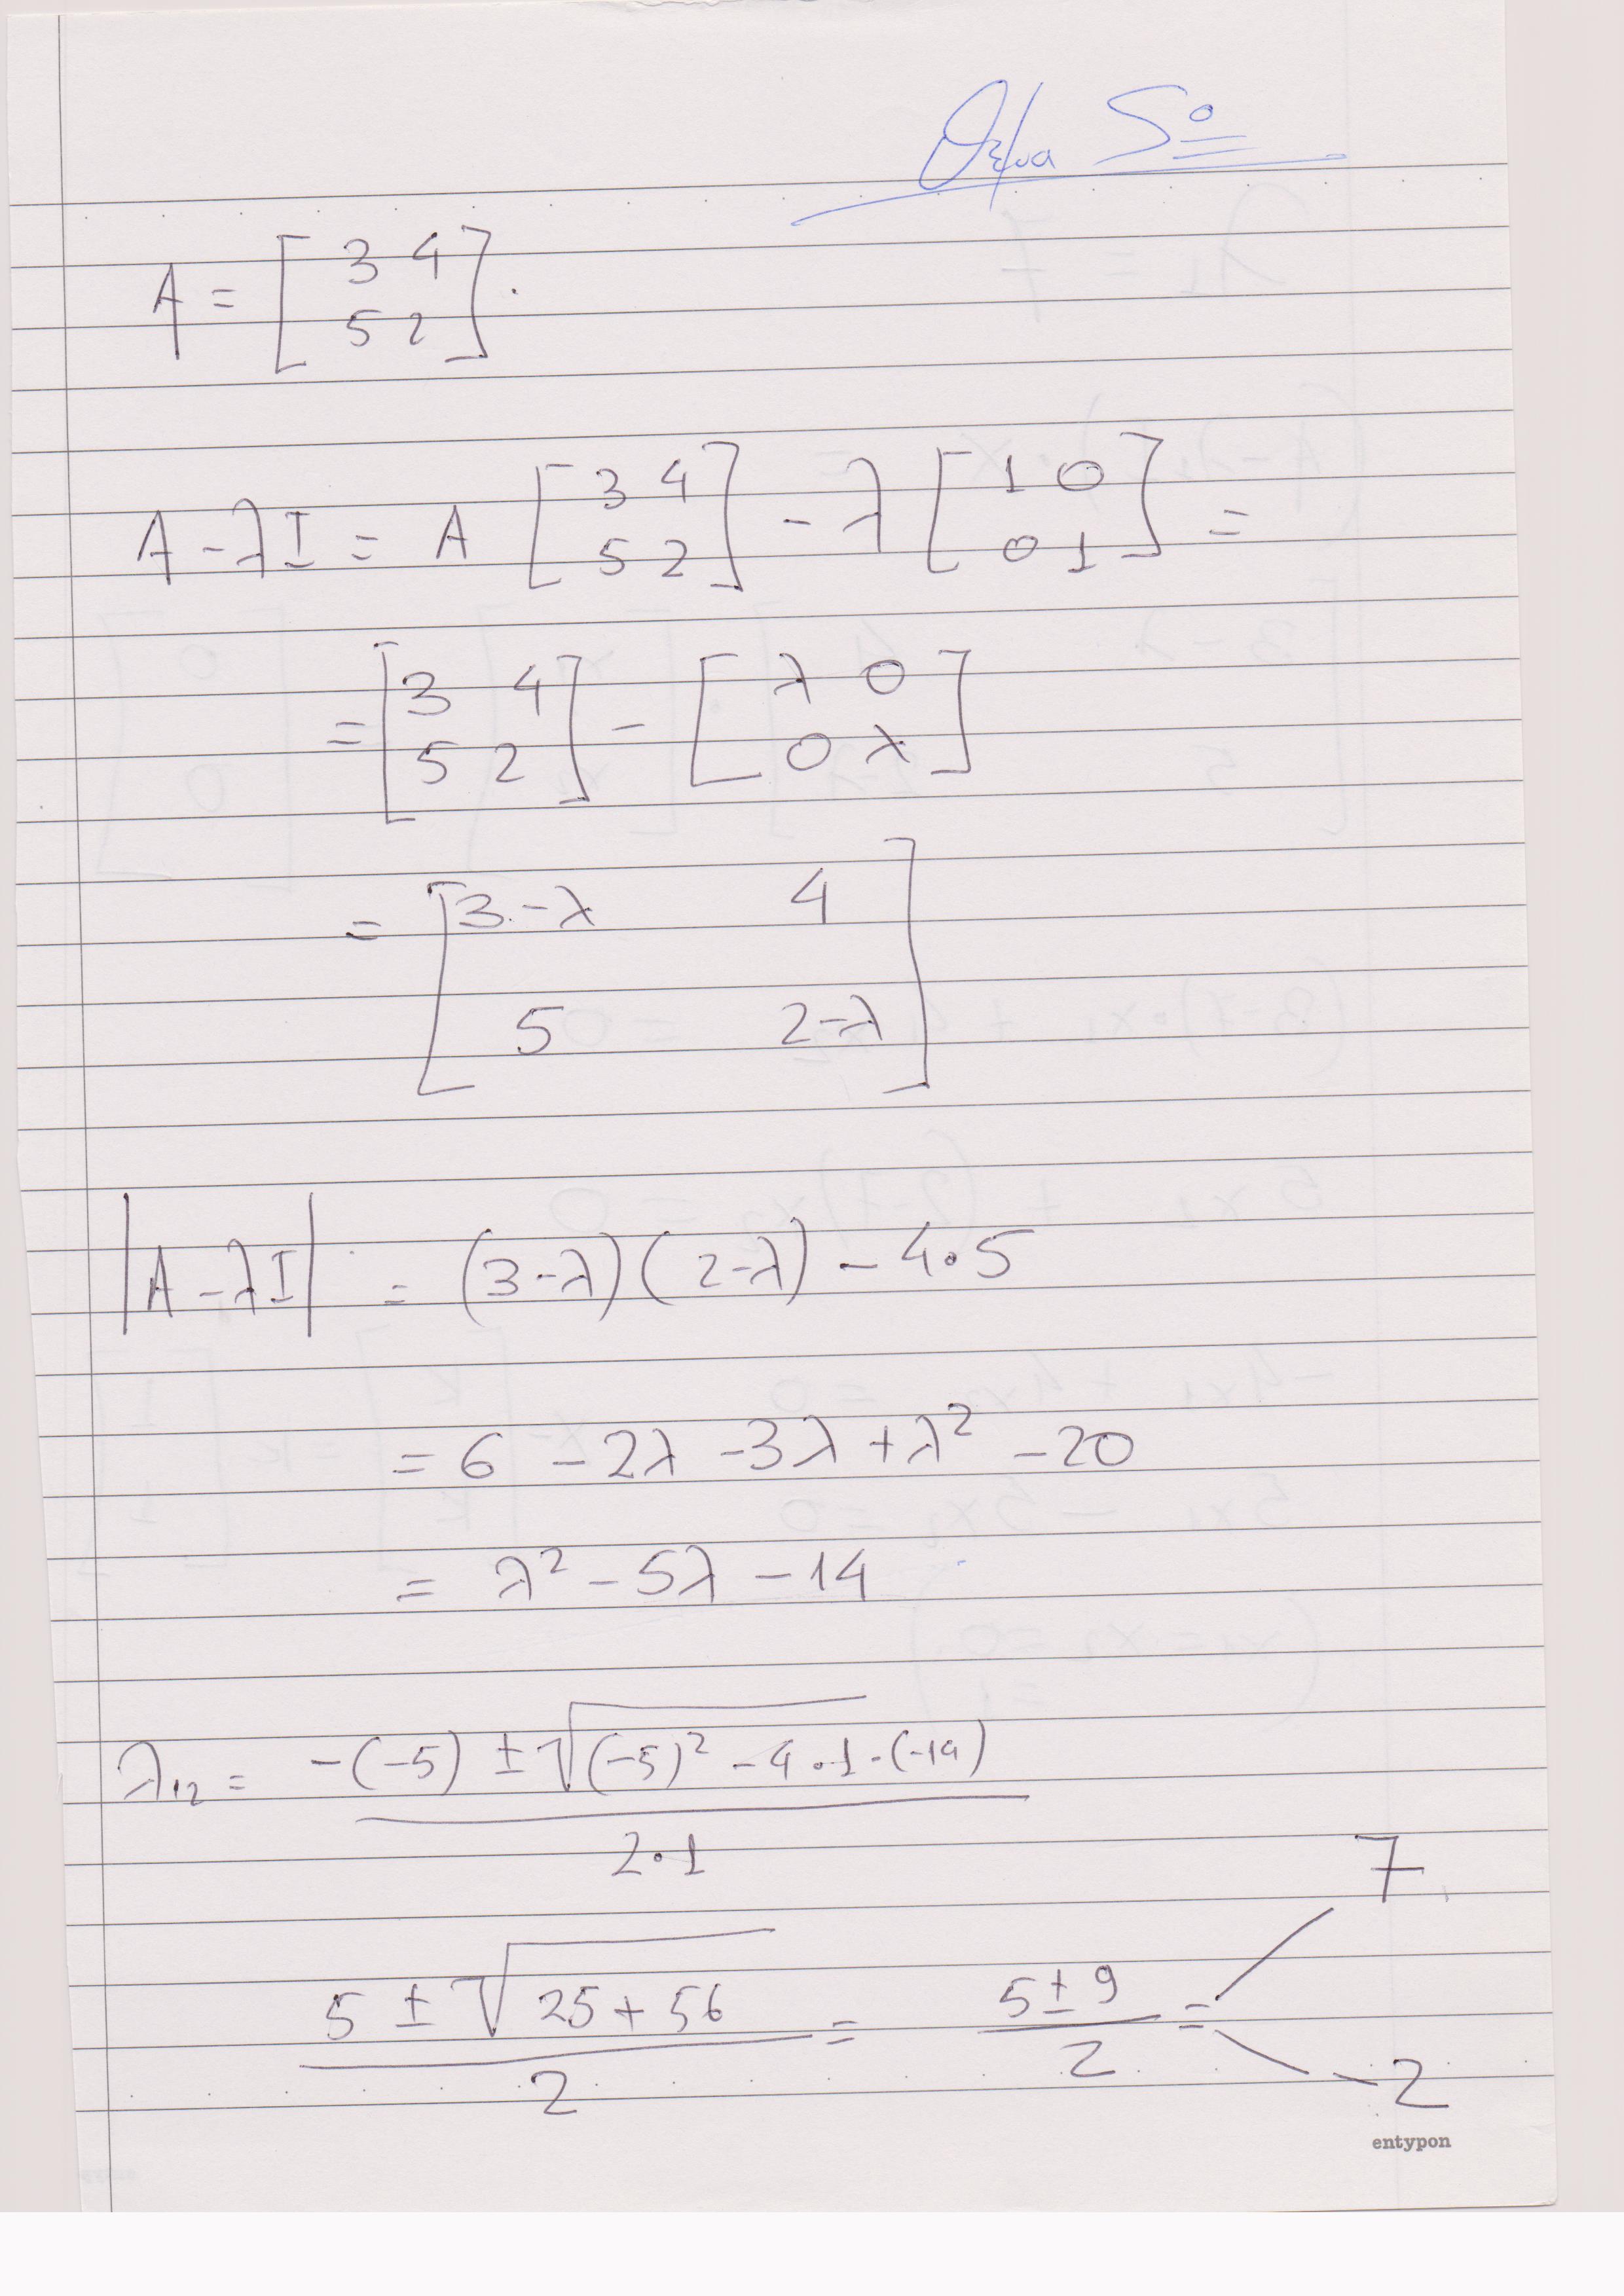 Θέμα 5º
A = [ 3 4
5 2 ] .
A - λI = A [ 3 4
5 2 ] - λ [ 1 0
0 1 ] =
= [ 3 4
5 2 ] - [ λ 0
0 λ ]
= [ 3-λ 4
5 2-λ ]
|A - λI| = (3-λ)(2-λ) - 4·5
= 6 - 2λ - 3λ + λ² - 20
= λ² - 5λ - 14
λ₁₂ = -(-5) ± √(-5)² - 4·1·(-14)
2·1
5 ± √25 + 56 / 2 = 5 ± 9 / 2 = 7
-2
entypon